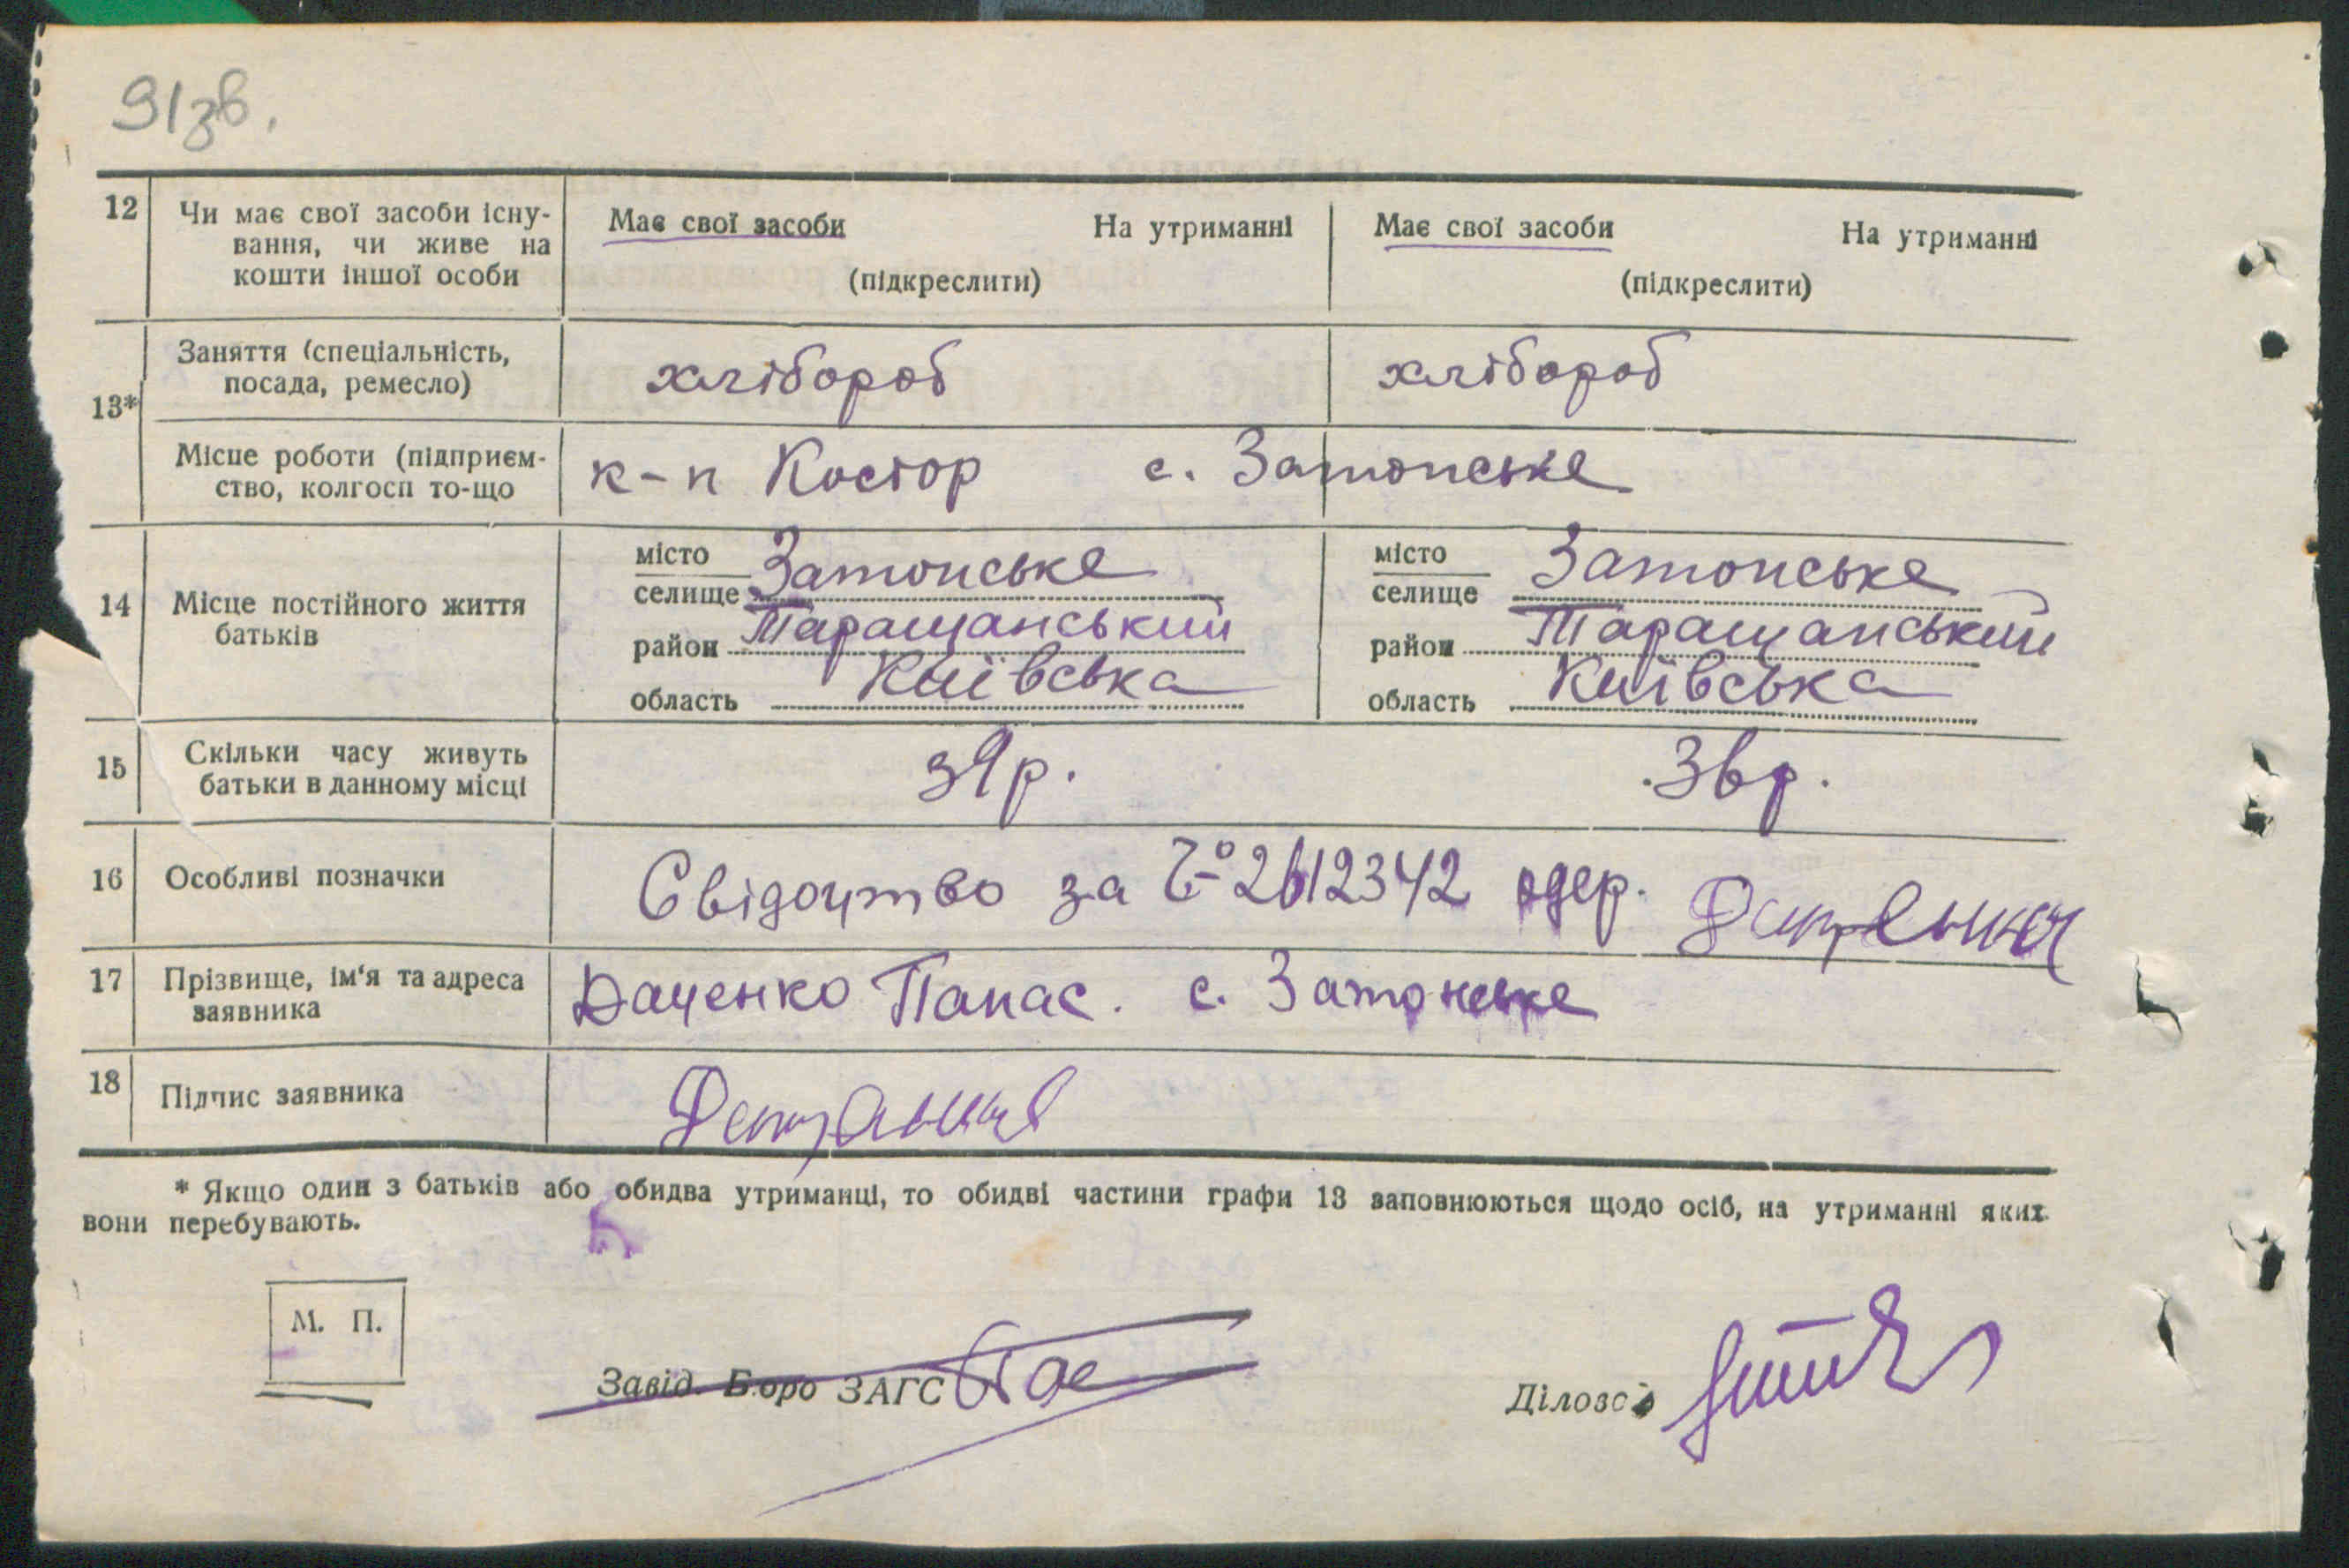 91зв.
12 Чи має свої засоби існу-
вання, чи живе на
кошти іншої особи
Має свої засоби На утриманні
(підкреслити)
Має свої засоби На утриманні
(підкреслити)
13*
Заняття (спеціальність,
посада, ремесло)
хлібороб
хлібороб
Місце роботи (підприєм-
ство, колгосп то-що
к-п Костор с. Затонське
14 Місце постійного життя
батьків
місто
селище Затонське
район Таращанський
область Київська
місто
селище Затонське
район Таращанський
область Київська
15 Скільки часу живуть
батьки в данному місці
39р.
36р.
16 Особливі позначки
Свідоцтво за № 2612342 одер.
17 Прізвище, ім'я та адреса
заявника
Даценко Панас. с. Затонське
18 Підпис заявника
* Якщо один з батьків або обидва утриманці, то обидві частини графи 13 заповнюються щодо осіб, на утриманні яких
вони перебувають.
М. П.
Завід. Бюро ЗАГС
Діловод